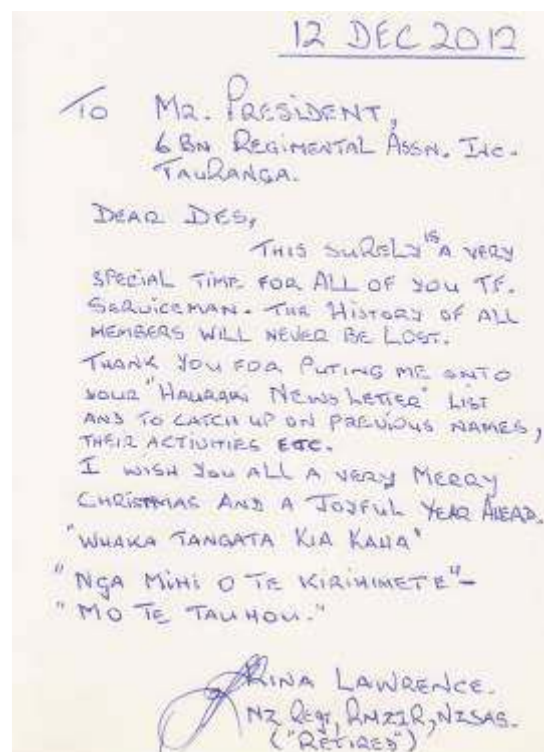 12 DEC 2012
To MR. PRESIDENT,
6 BN REGIMENTAL ASSN. INC.
TAURANGA.
DEAR DES,
THIS SURELY IS A VERY
SPECIAL TIME FOR ALL OF YOU TF.
SERVICEMAN. THE HISTORY OF ALL
MEMBERS WILL NEVER BE LOST.
THANK YOU FOR PUTING ME ONTO
YOUR "HAURAKI NEWS LETTER" LIST
AND TO CATCH UP ON PREVIOUS NAMES,
THEIR ACTIVITIES ETC.
I WISH YOU ALL A VERY MERRY
CHRISTMAS AND A JOYFUL YEAR AHEAD.
"WHAKA TANGATA KIA KAHA"
"NGA MIHI O TE KIRIHIMETE"-
"MO TE TAUHOU."
RINA LAWRENCE.
NZ Regt, RNZIR, NZSAS.
("RETIRED")